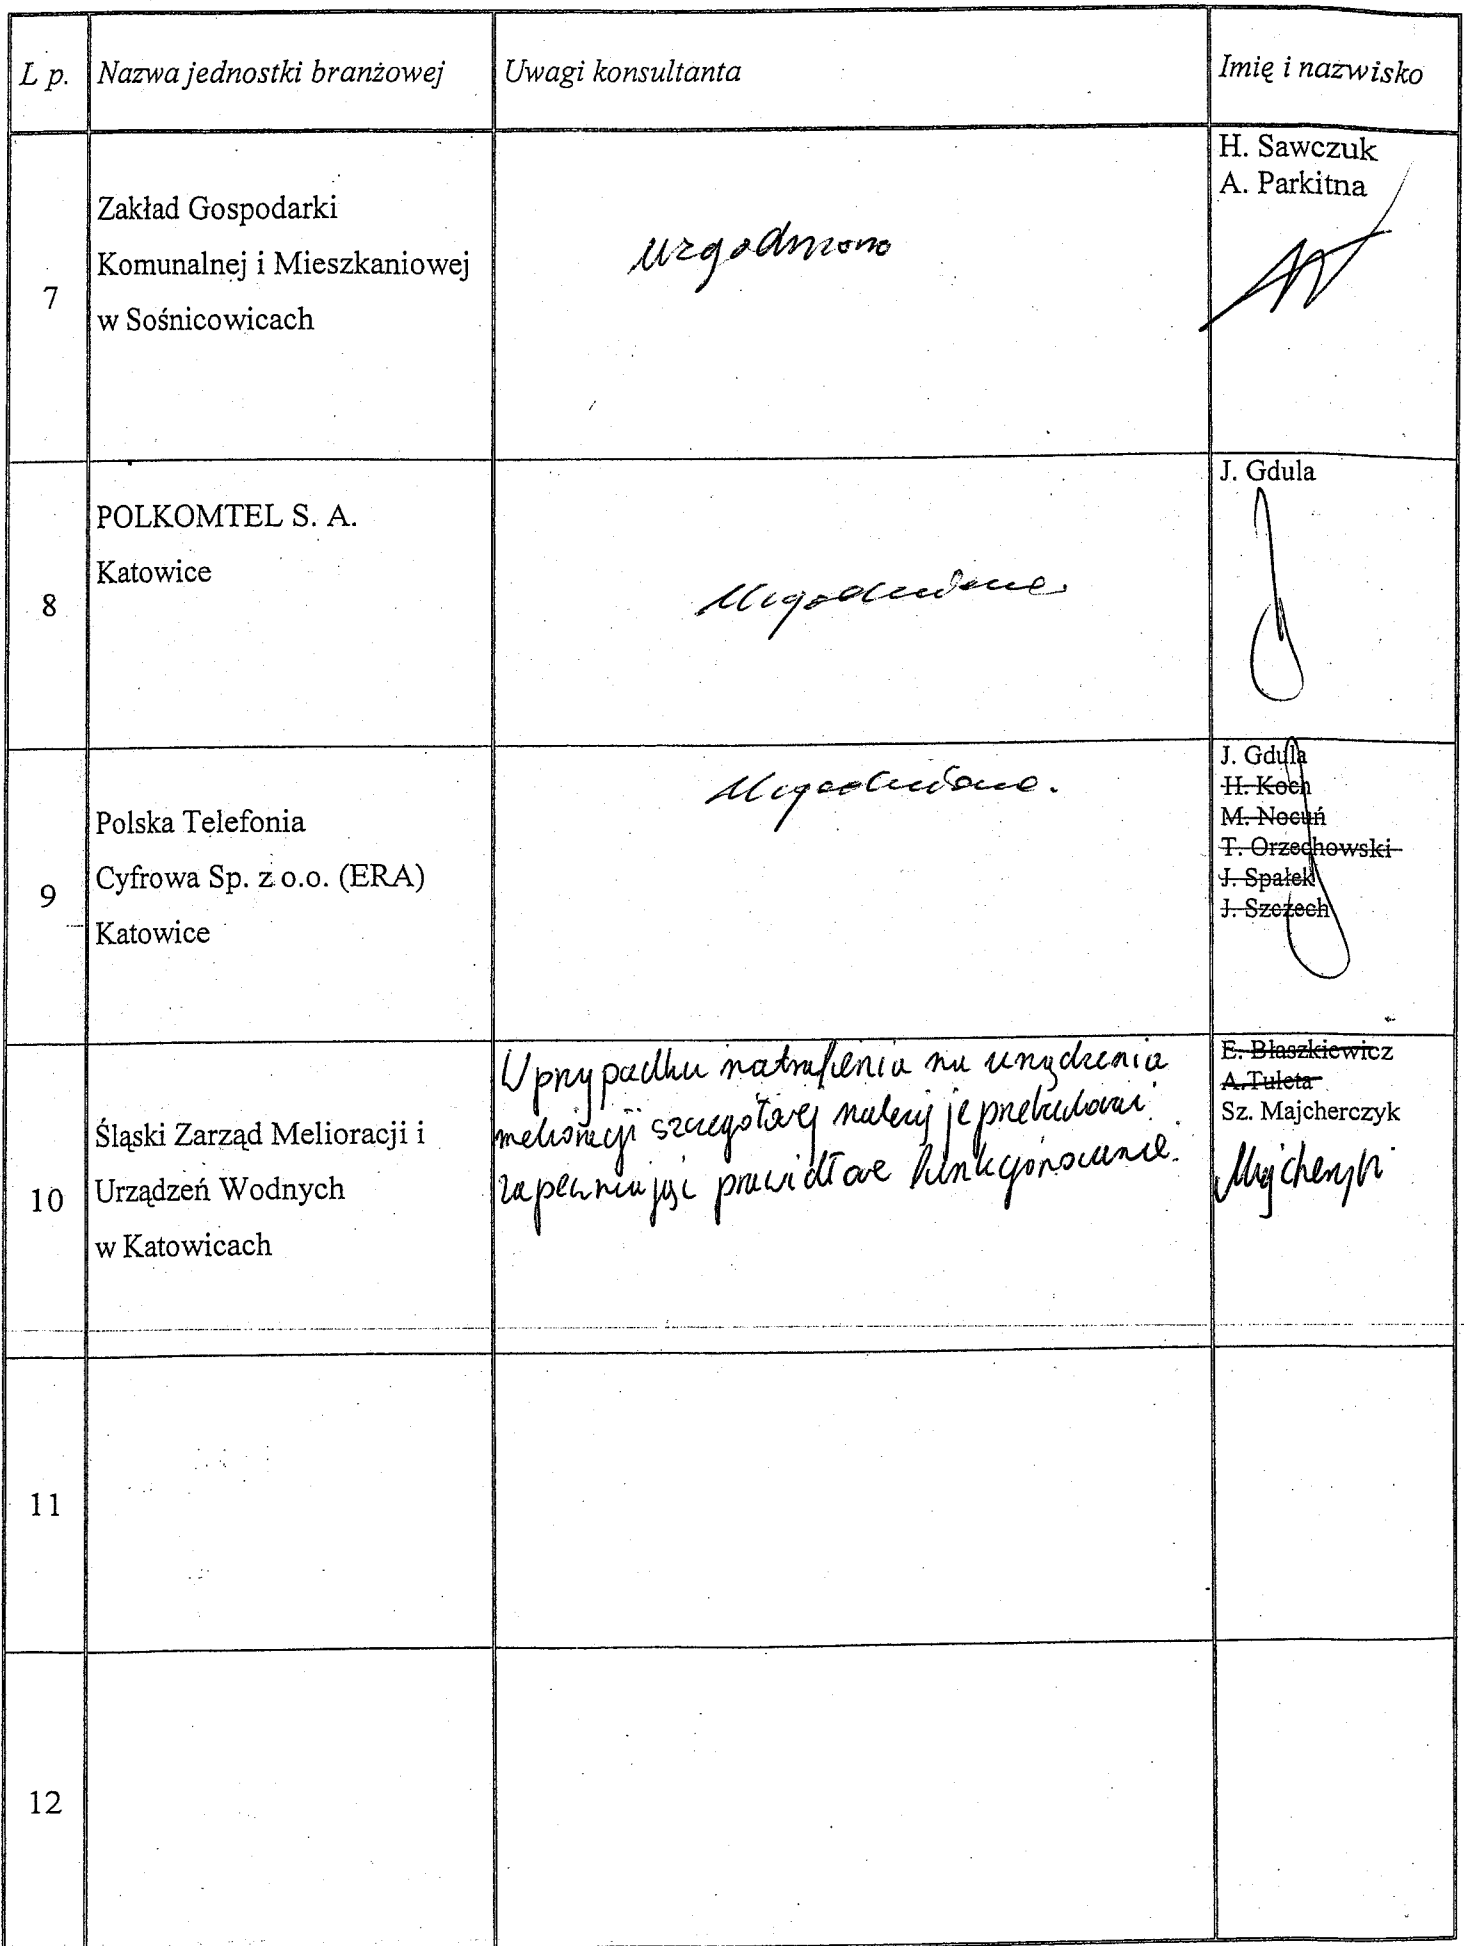 L p. Nazwa jednostki branżowej Uwagi konsultanta Imię i nazwisko
7
Zakład Gospodarki
Komunalnej i Mieszkaniowej
w Sośnicowicach
uzgodniono
H. Sawczuk
A. Parkitna
8
POLKOMTEL S. A.
Katowice
Uzgodniono
J. Gdula
9
Polska Telefonia
Cyfrowa Sp. z o.o. (ERA)
Katowice
Uzgodniono.
J. Gdula
H. Koch
M. Nocuń
T. Orzechowski
J. Spałek
J. Szczech
10
Śląski Zarząd Melioracji i
Urządzeń Wodnych
w Katowicach
W przypadku natrafienia na urządzenia
melioracji szczegółowej należy je przebudować
zapewniając prawidłowe funkcjonowanie.
E. Błaszkiewicz
A.Tuleta
Sz. Majcherczyk
11
12